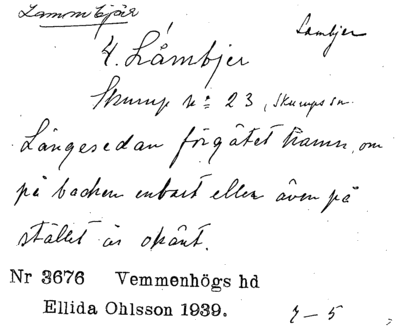 Lammbjär
Lambjer
4. Låmbjer
Skurup n: 23, Skurups sn.
Längesedan förgätet namn, om
på backen enbart eller även på
stället är okänt.
Nr 3676 Vemmenhögs hd
Ellida Ohlsson 1939.
4 – 5